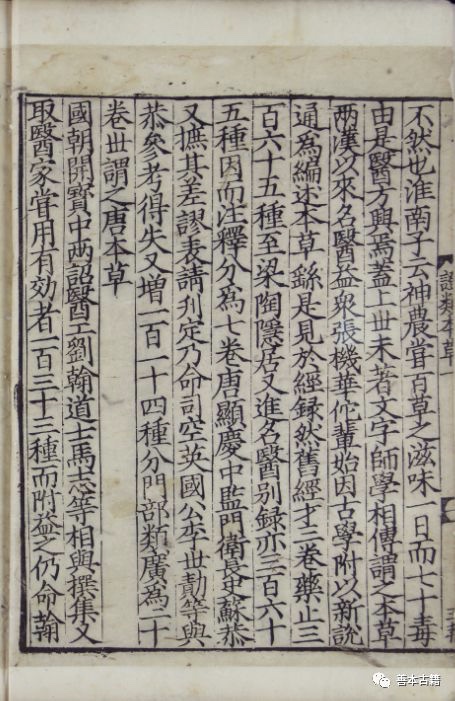 證類本草
不然也淮南子云神農嘗百草之滋味一日而七十毒
由是醫方興焉蓋上世未著文字師學相傳謂之本草
两漢以來名醫益衆張機華佗輩始因古學附以新說
通爲編述本草繇是見於經録然舊經才三卷藥止三
百六十五種至梁陶隱居又進名醫别録亦三百六十
五種因而注釋分爲七卷唐顯慶中監門衛長史蘇恭
又摭其差謬表請刋定乃命司空英國公李世勣等與
恭參考得失又增一百一十四種分門部類廣爲二十
卷世謂之唐本草
國朝開寶中两詔醫工劉翰道士馬志等相與撰集又
取醫家嘗用有効者一百三十三種而附益之仍命翰
善本古籍